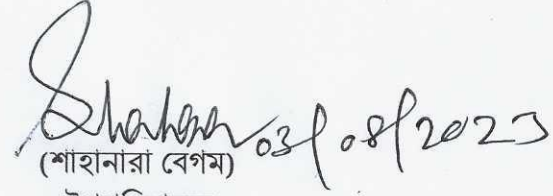 Shahana 03/08/2023
(শাহানারা বেগম)